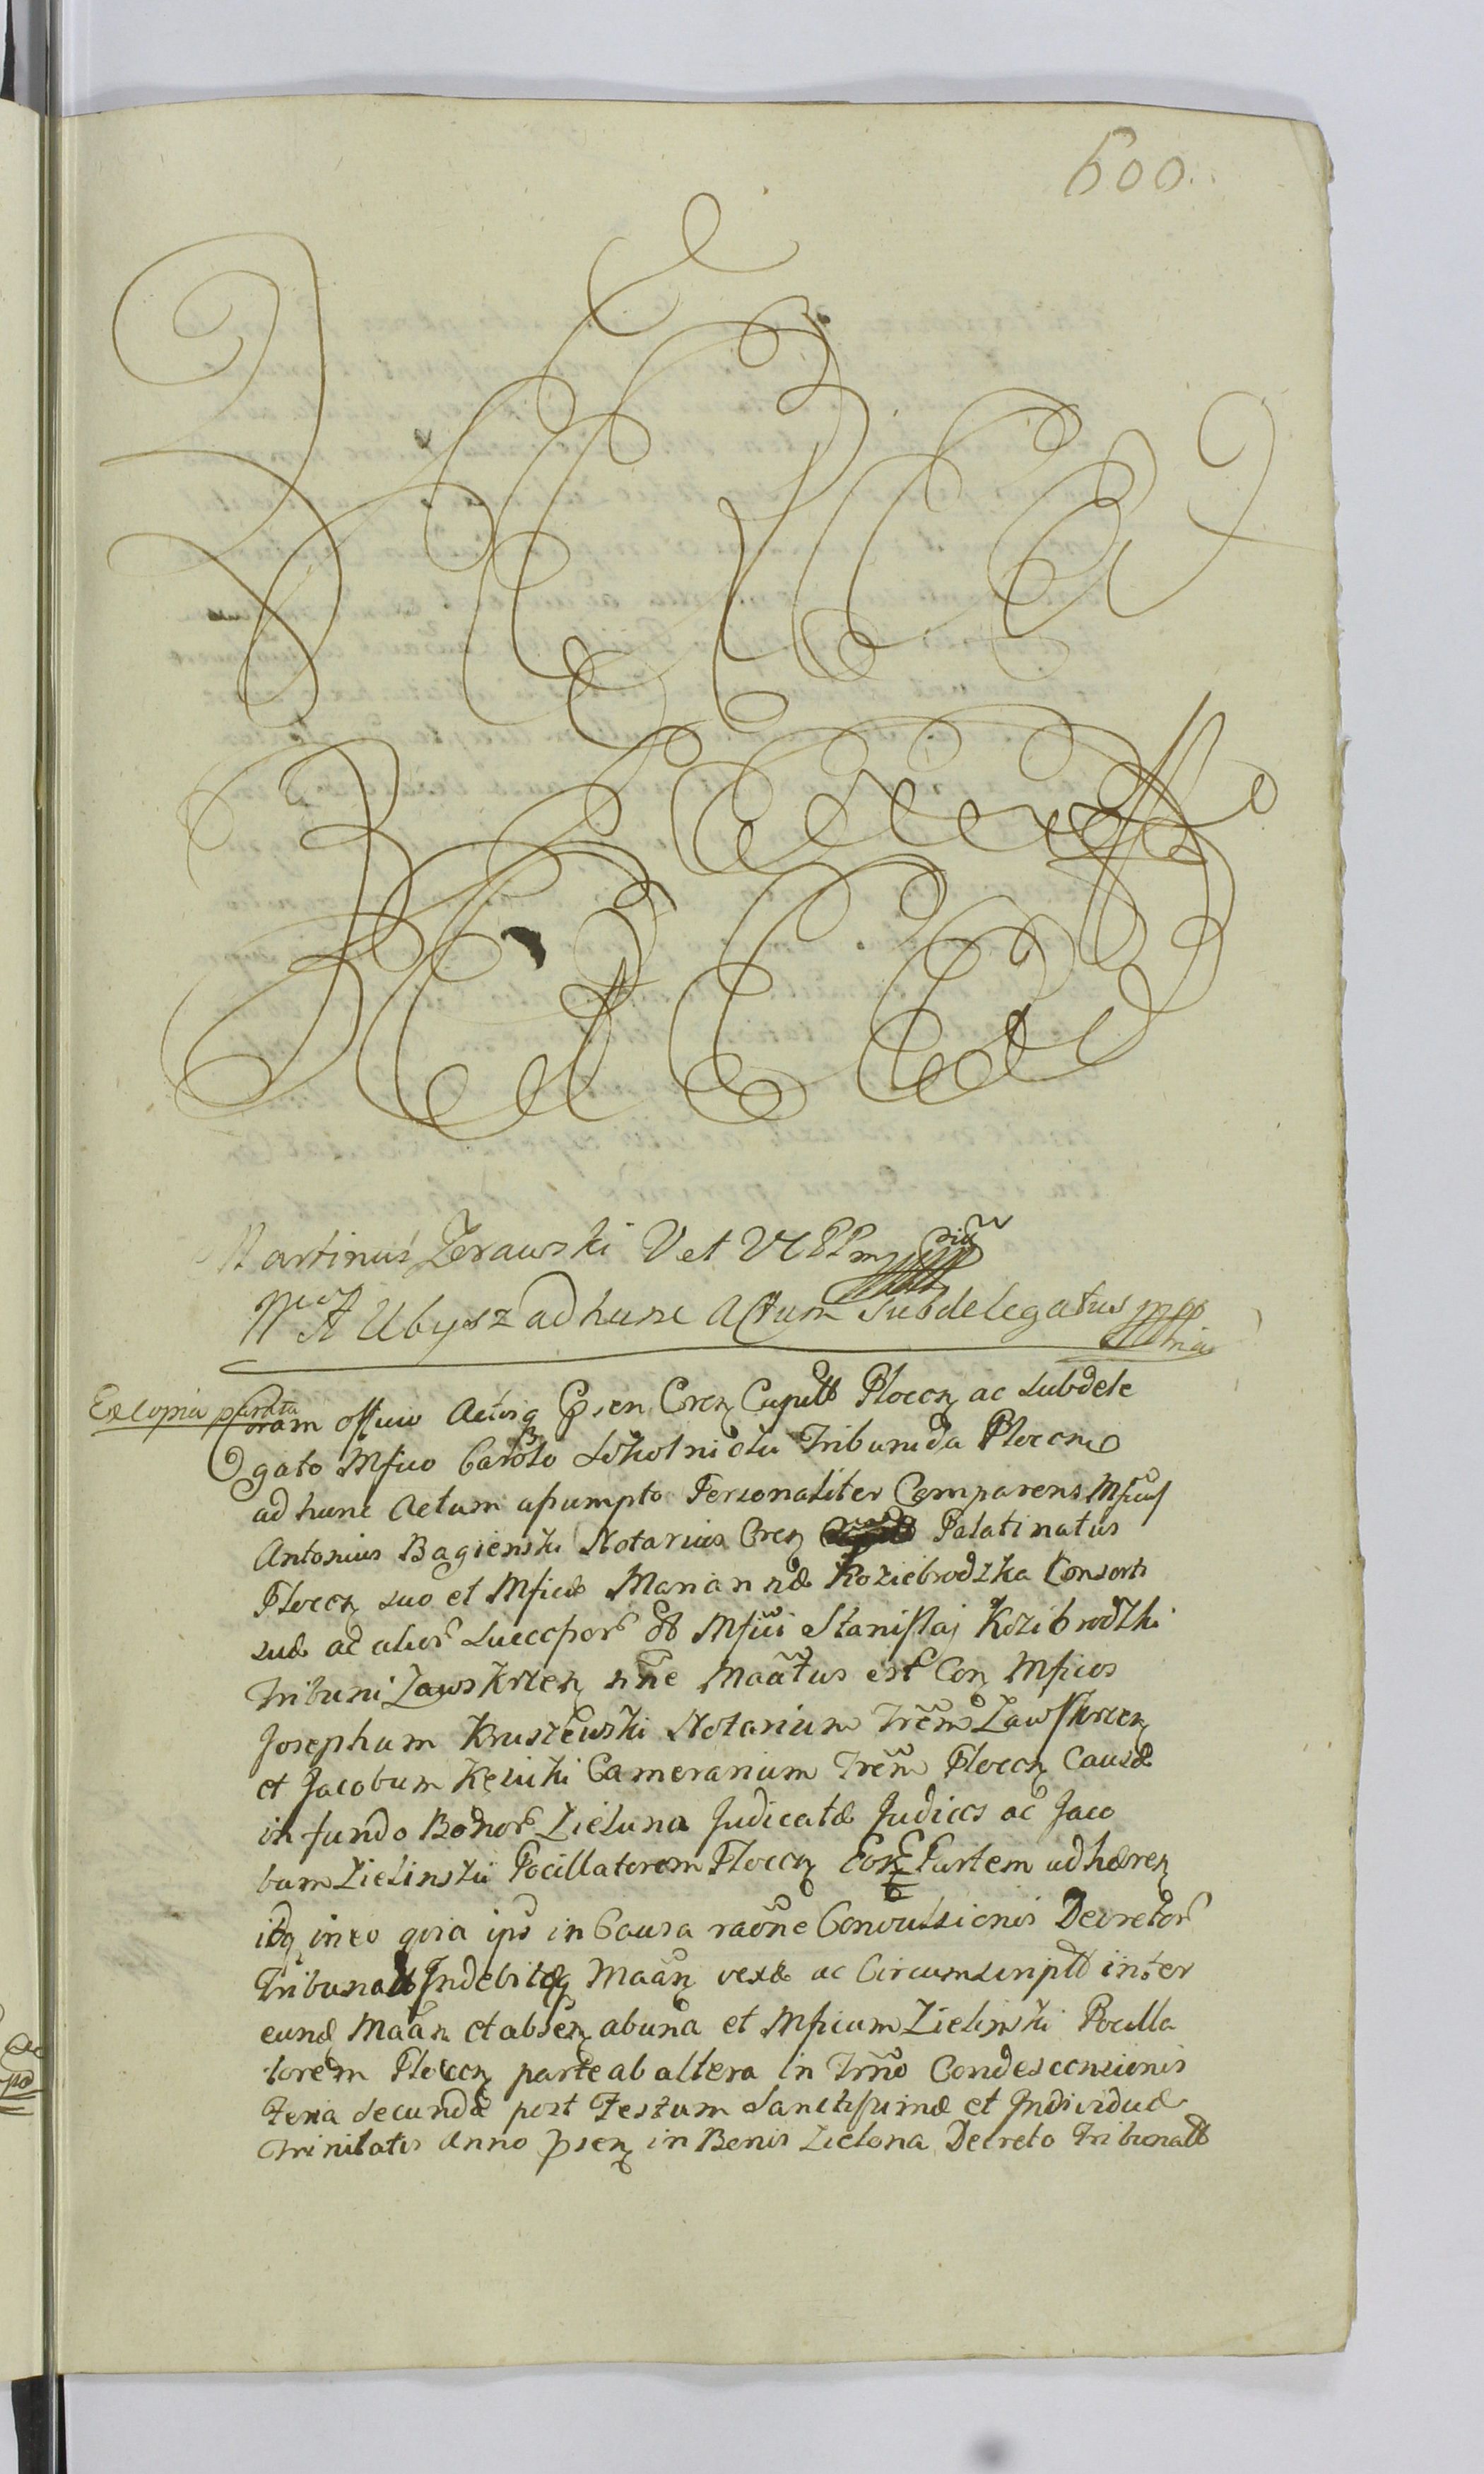 600.
Martinus Zerawski V et VCPPmpria
A Ubysz ad hunc Actum Subdelegatus mppria
Ex copia parata
Coram officio Actisq Psen Cren Capitt Ploccn ac Subdele
gato Mfico Carolo Sokolnicki Tribunida Ploccn
ad hunc Actum assumpto Personaliter Comparens Mficus
Antonius Bagienski Notarius Cren Palatinatus
Ploccn suo et Mficæ Mariannæ Koziebrodzka Consortis
suæ ac alior Succcssor Mfici Stanislaj Kozibrodzki
Tribuni Zawskrzen nne Maãtus est Con Mficos
Josephum Kruszewski Notarium Trẽm Zawskrzen
et Jacobum Kęsicki Camerarium Trẽm Ploccn Causæ
in fundo Bonor Zieluna Judicatæ Judices ac Jaco
bum Zielinski Pocillatorem Ploccn Eorq Partem adhæren
idq in eo quia ipsi in Causa raõne Convulsionis Decretor
Tribunalt Indebitæq Maãn vexæ ac Circumscriptt inter
eunđ Maãn et absen ab una et Mficum Zielinski Pocilla
torem Ploccn parte ab altera in Trno Condescensionis
Feria secunda post Festum Sanctissimæ et Individuæ
Trinitatis Anno psen in Bonis Zielona Decreto Tribunalt